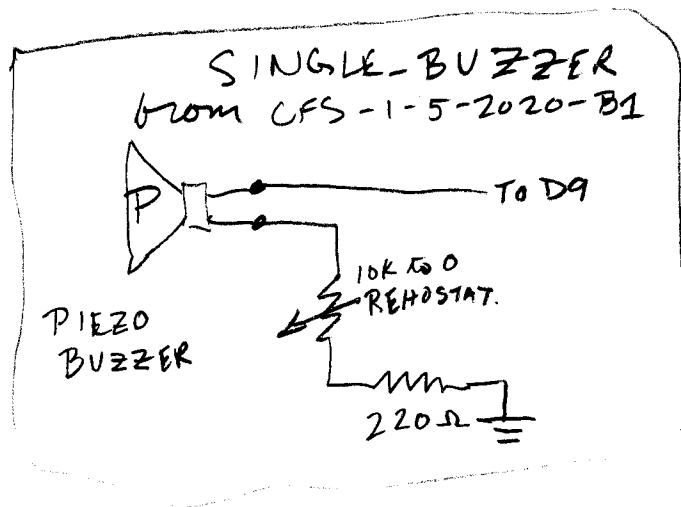 SINGLE-BUZZER
from CFS-1-5-2020-B1
P
TO D9
10K to 0
REHOSTAT.
PIEZO
BUZZER
220Ω